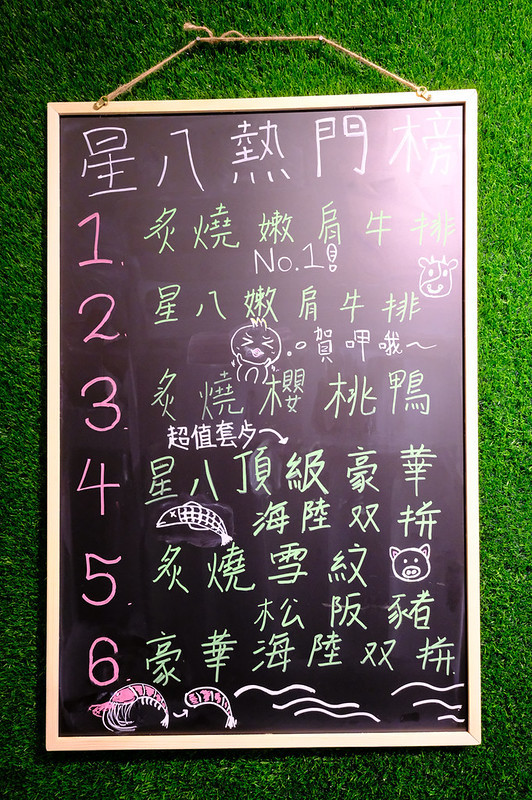 星八熱門榜
1. 炙燒嫩肩牛排
No.1!
2. 星八嫩肩牛排
賀呷哦~
3. 炙燒櫻桃鴨
超值套歺
4. 星八頂級豪華
海陸双拼
5. 炙燒雪紋
松阪豬
6. 豪華海陸双拼